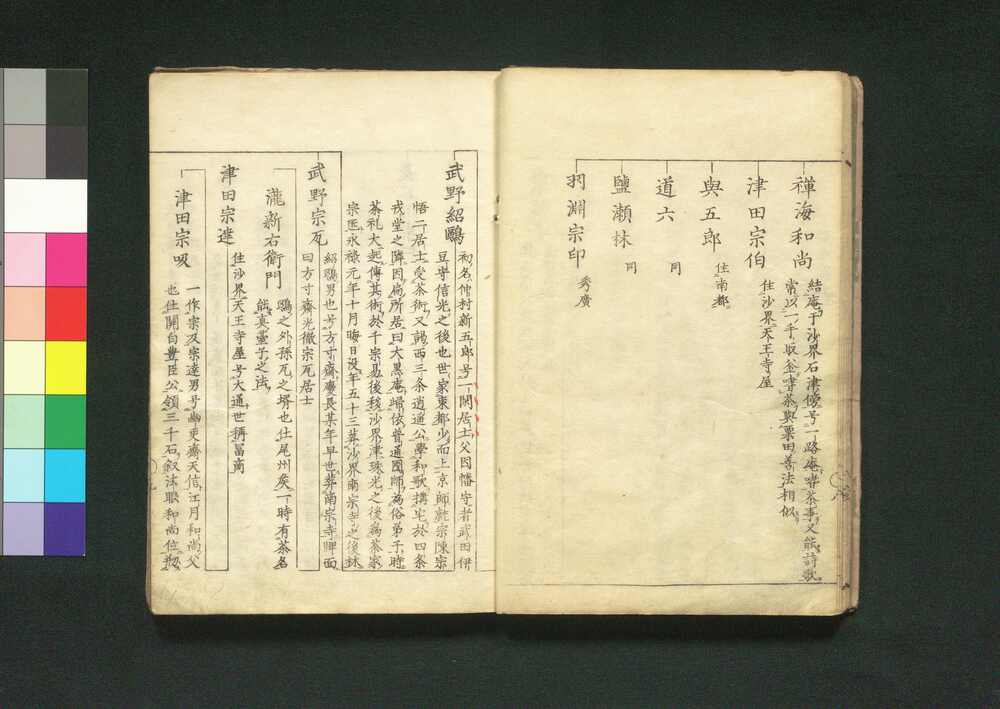 禪海和尚
結庵于沙界石津傍号一路庵嗜茶事又能詩歌
常以一手取釜嗜茶與粟田善法相似
津田宗伯
住沙界天王寺屋
與五郎
住南都
道六
同
鹽瀬林
同
羽淵宗印
秀廣
武野紹鷗
初名仲村新五郎号一閑居士父因幡守者武田伊
豆守信光之後也世家東都少而上京師就宗陳宗
悟二居士受茶術又謁西三条逍遥公學和歌搆宅於四条
戎堂之隣因扁所居曰大黒庵歸依普通國師為俗弟子時
茶礼大起傳其術於千宗易後移沙界津珠光之後為茶家
宗匠永禄元年十月晦日没年五十三葬沙界南宗寺之後林
武野宗瓦
紹鷗男也号方寸齋慶長某年早世葬南宗寺牌面
曰方寸齋光徹宗瓦居士
瀧新右衛門
鷗之外孫瓦之壻也仕尾州矣一時有茶名
能真臺子之法
津田宗達
住沙界天王寺屋号大通世稱冨商
津田宗吸
一作宗及宗達男号幽更齋天信江月和尚父
也仕關白豊臣公領三千石叙法眼和尚位